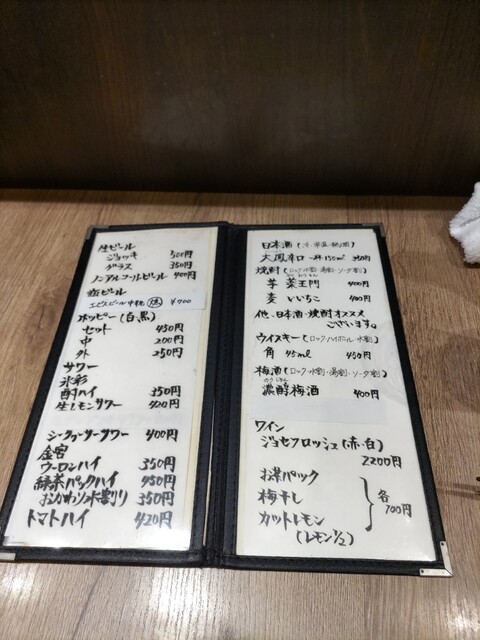 生ビール
ジョッキ 500円
グラス 350円
ノンアルコールビール 400円
瓶ビール
エビスビール中瓶 ¥700
ホッピー(白、黒)
セット 450円
中 200円
外 250円
サワー
氷彩
酎ハイ 350円
生レモンサワー 400円
シークヮーサーサワー 400円
金宮
ウーロンハイ 350円
緑茶パックハイ 450円
おかわり水割り 350円
トマトハイ 420円
日本酒
大鳳辛口 一杯150ml 350円
焼酎(ロック・水割・湯割・ソーダ割)
芋 薬王門 400円
麦 いいちこ 400円
他、日本酒・焼酎オススメ
ございます。
ウイスキー(ロック・ハイボール・水割)
角 45ml 450円
梅酒(ロック・水割・湯割・ソーダ割)
濃醇梅酒 400円
ワイン
ジョセフロッシュ(赤・白)
2200円
お茶パック
梅干し
カットレモン
(レモン1/2)
各
100円